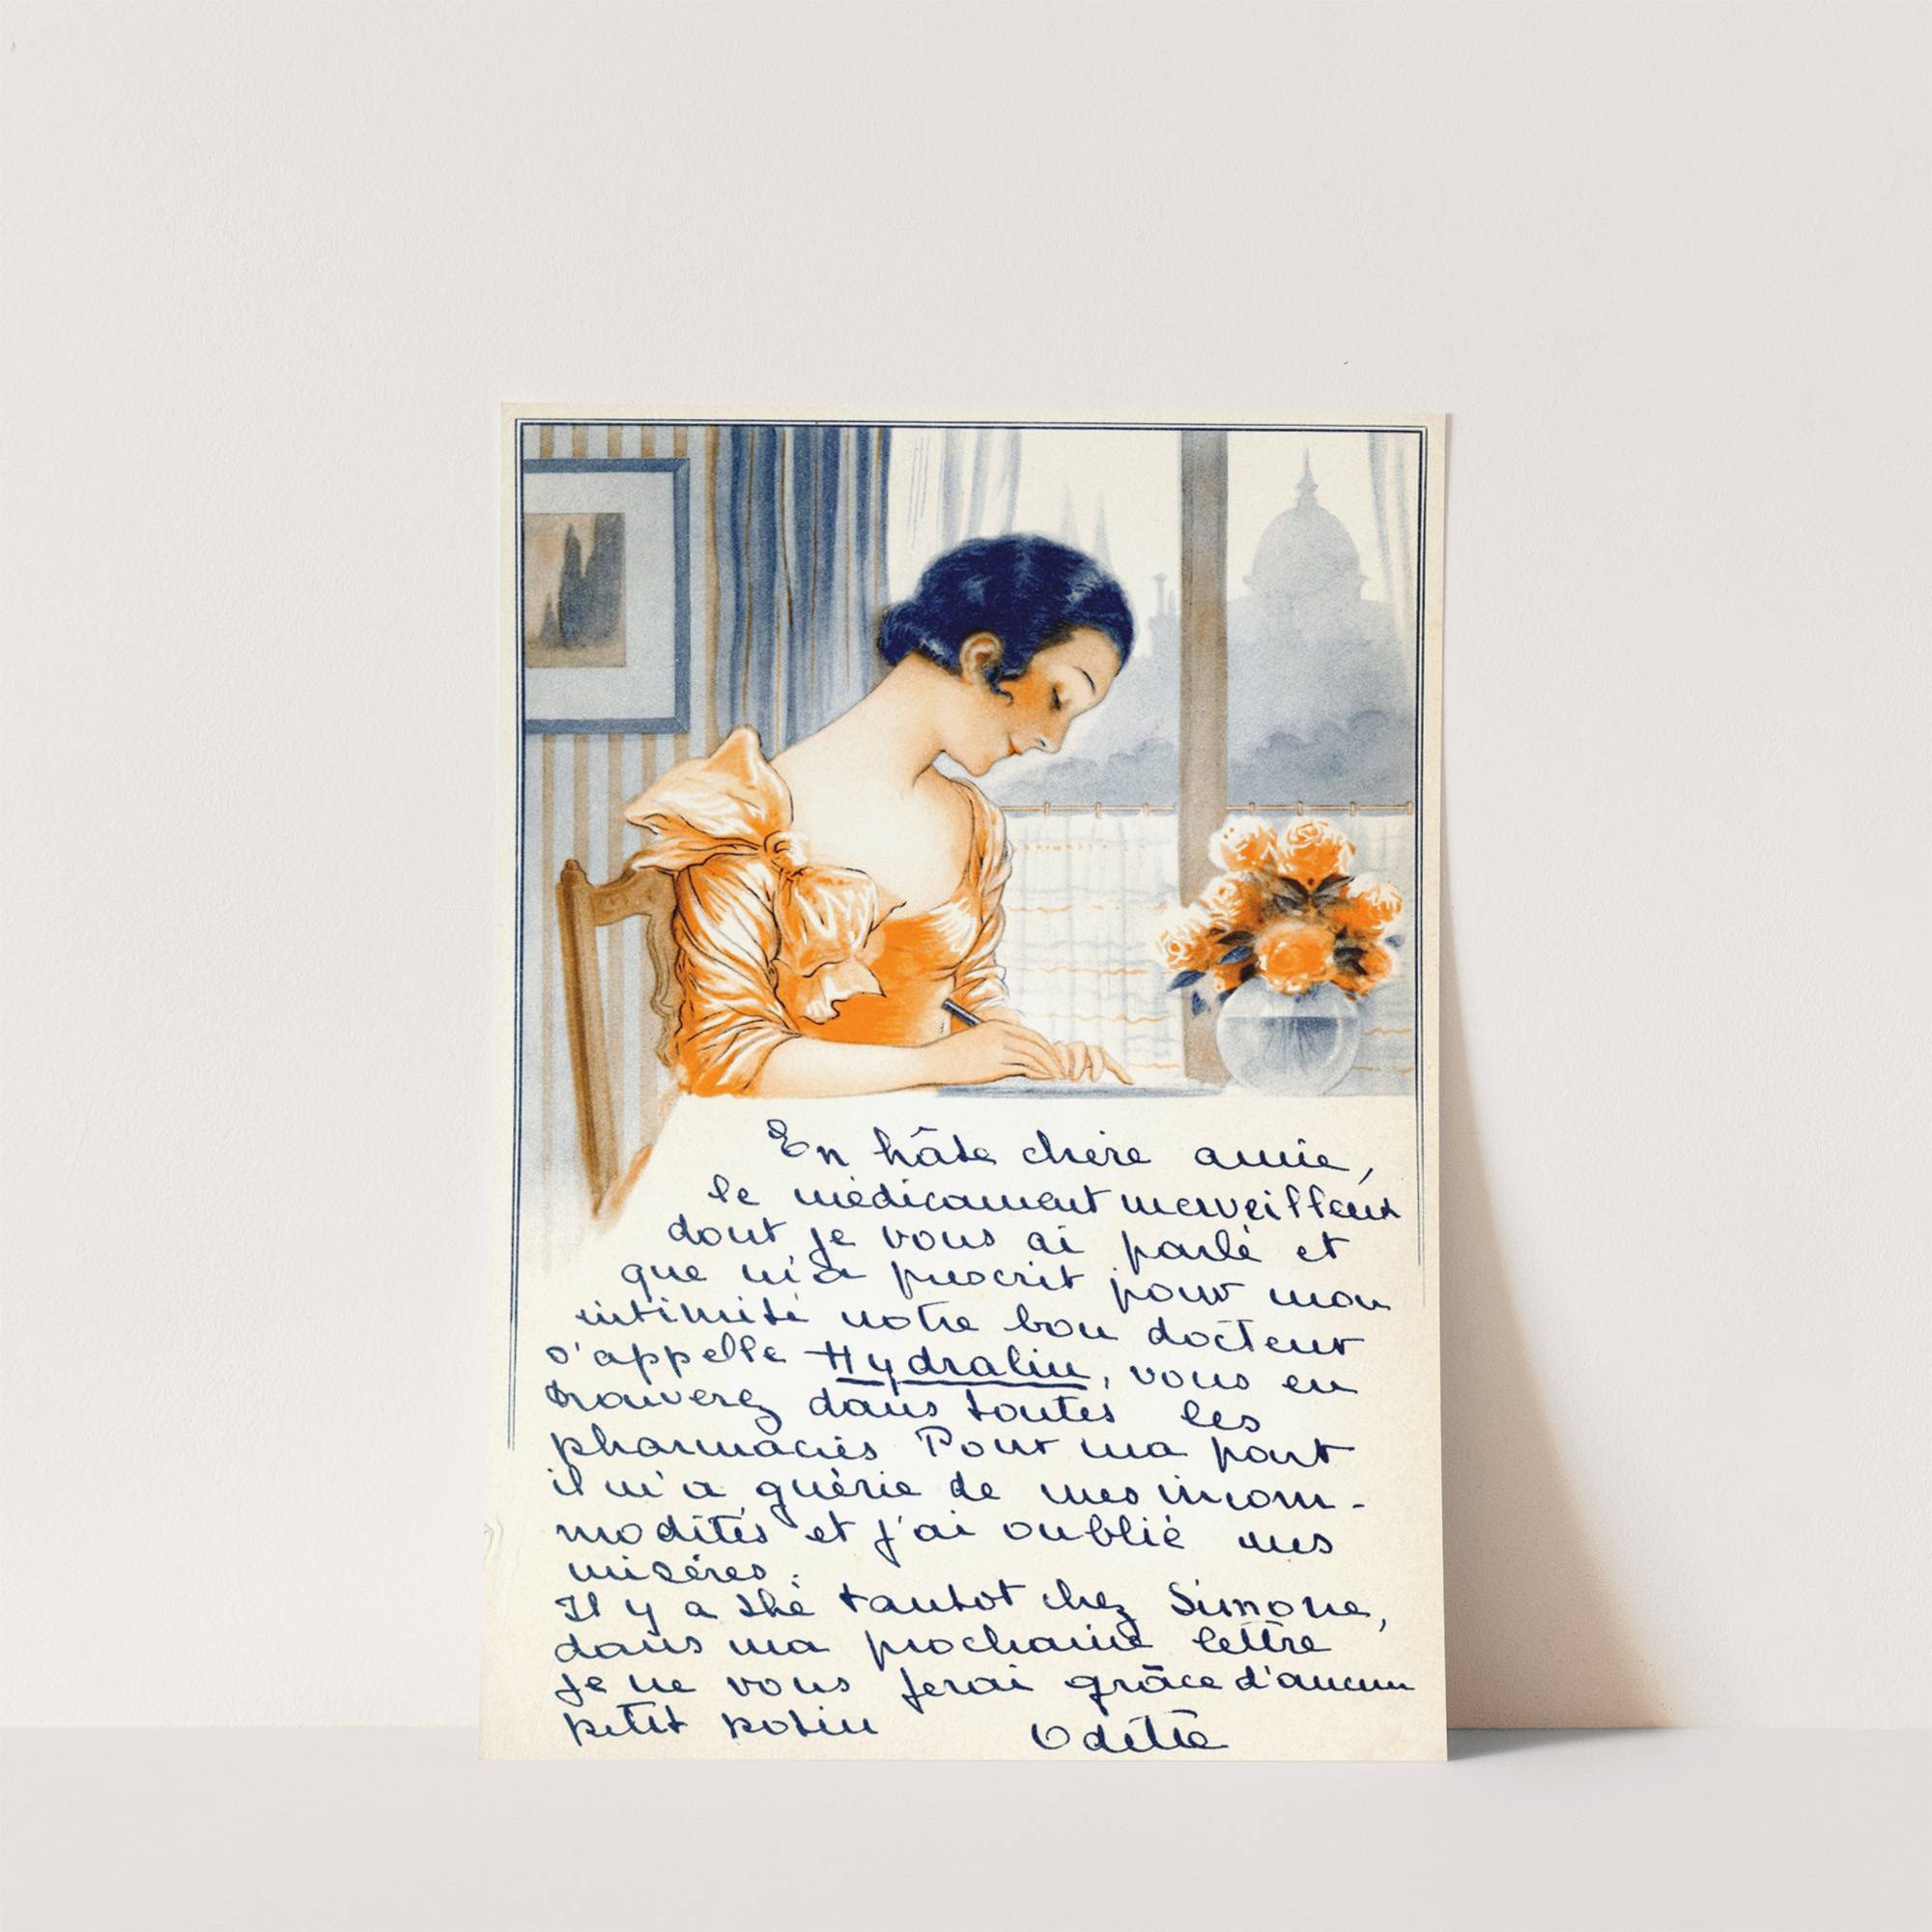 En hâte chère amie,
le médicament merveilleux
dont je vous ai parlé et
que m'a prescrit pour mon
intimité notre bon docteur
s'appelle Hydralin, vous en
trouverez dans toutes les
pharmacies Pour ma part
il m'a guérie de mes incom-
modités et j'ai oublié mes
misères.
Il y a thé tantot chez Simone,
dans ma prochaine lettre
je ne vous ferai grâce d'aucun
petit potin Odette